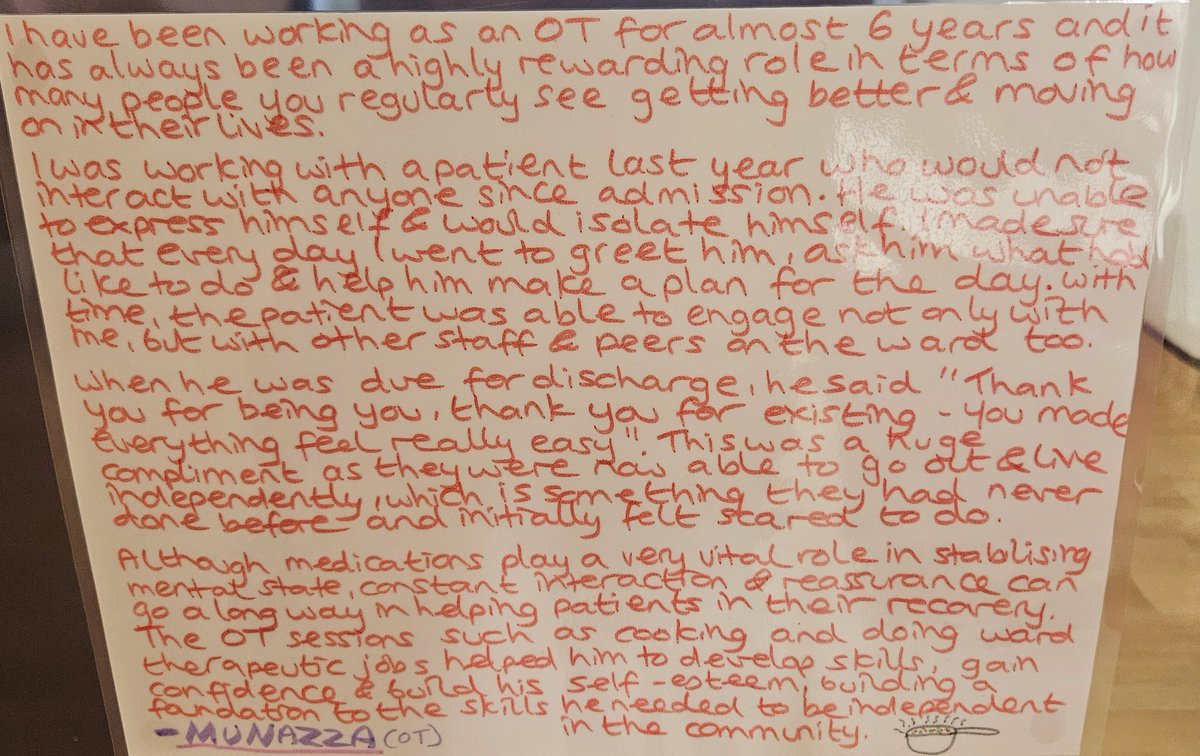 I have been working as an OT for almost 6 years and it
has always been a highly rewarding role in terms of how
many people you regularly see getting better & moving
on in their lives.
I was working with a patient last year who would not
interact with anyone since admission. He was unable
to express himself & would isolate himself. I made sure
that every day I went to greet him, ask him what he'd
like to do & help him make a plan for the day. With
time, the patient was able to engage not only with
me, but with other staff & peers on the ward too.
When he was due for discharge, he said "Thank
you for being you, thank you for existing - you made
everything feel really easy". This was a huge
compliment as they were now able to go out & live
independently, which is something they had never
done before and initially felt scared to do.
Although medications play a very vital role in stabilising
mental state, constant interaction & reassurance can
go a long way in helping patients in their recovery.
The OT sessions such as cooking and doing ward
therapeutic jobs helped him to develop skills, gain
confidence & build his self-esteem, building a
foundation to the skills he needed to be independent
in the community.
- MUNAZZA (OT)